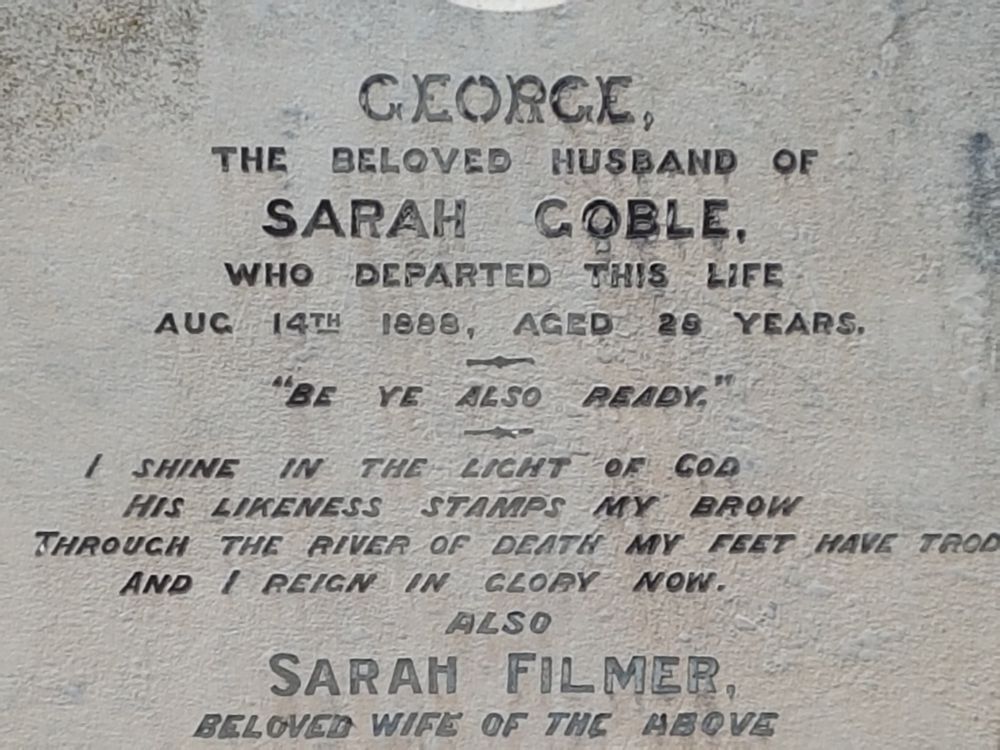 GEORGE,
THE BELOVED HUSBAND OF
SARAH GOBLE,
WHO DEPARTED THIS LIFE
AUG 14TH 1888, AGED 28 YEARS.
"BE YE ALSO READY."
I SHINE IN THE LIGHT OF GOD
HIS LIKENESS STAMPS MY BROW
THROUGH THE RIVER OF DEATH MY FEET HAVE TROD
AND I REIGN IN GLORY NOW.
ALSO
SARAH FILMER,
BELOVED WIFE OF THE ABOVE